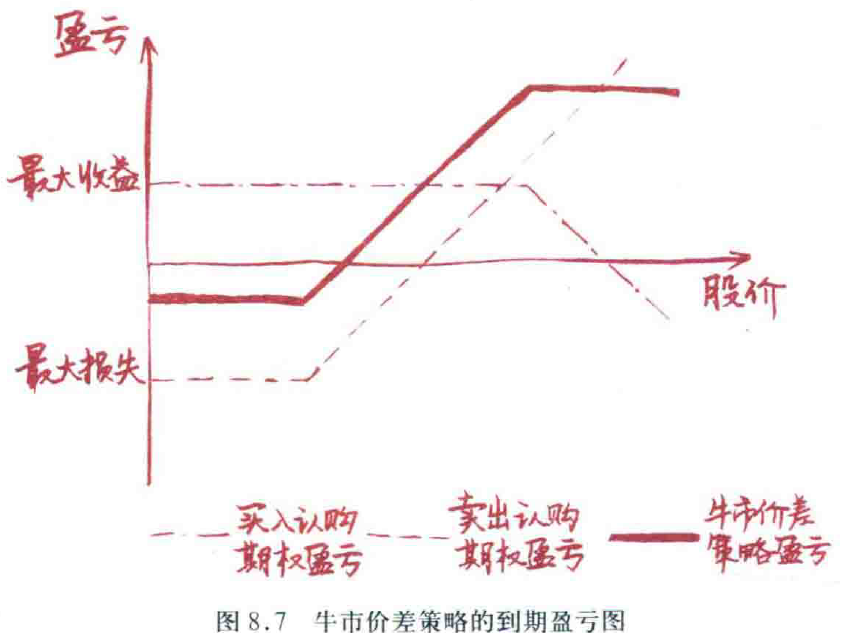 盈亏
最大收益
股价
最大损失
买入认购
期权盈亏
卖出认购
期权盈亏
牛市价差
策略盈亏
图 8.7 牛市价差策略的到期盈亏图